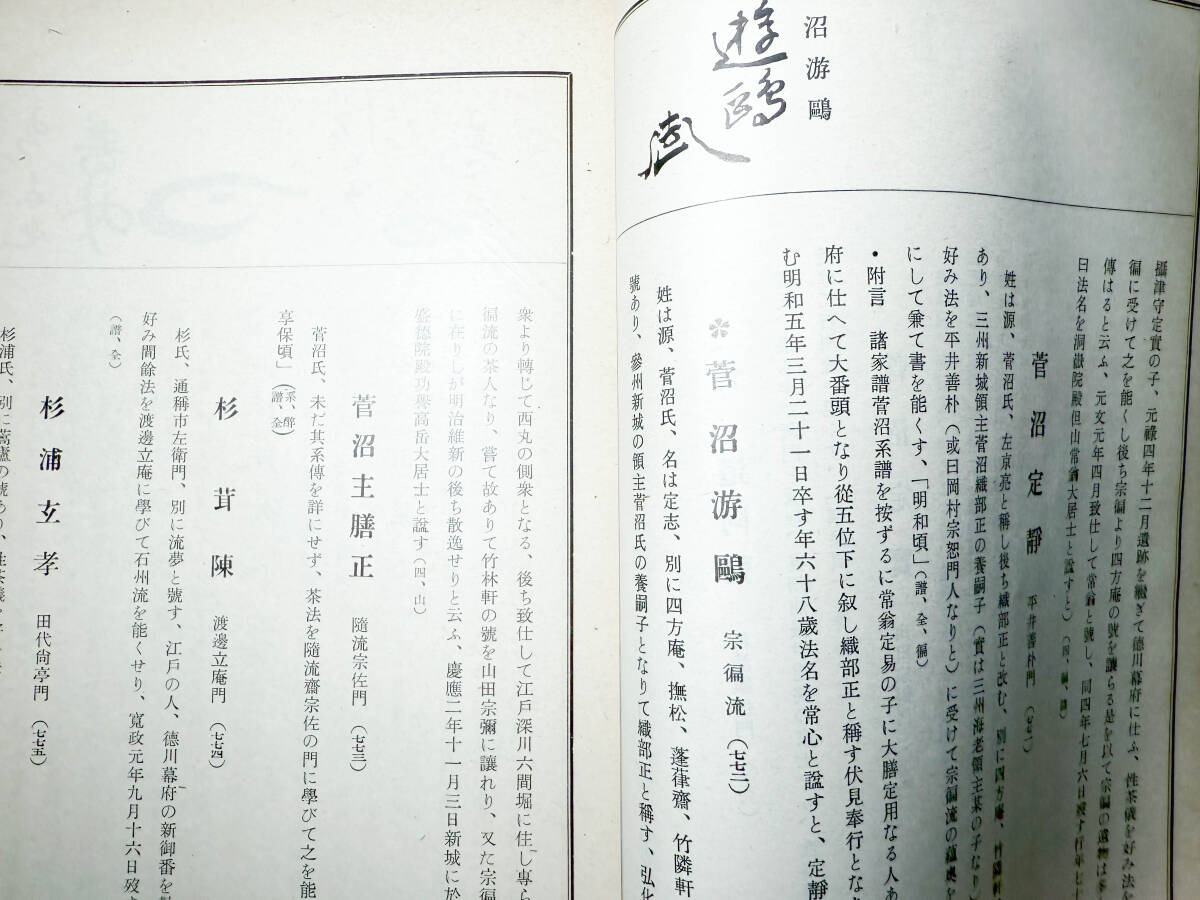 沼游鷗
遊鷗
攝津守定實の子、元祿四年十二月遺跡を繼ぎて德川幕府に仕ふ、性茶儀を好み法を
徧に受けて之を能くし後ち宗徧より四方庵の號を讓らる是を以て宗徧の遺物は多
傳はると云ふ、元文元年四月致仕して常翁と號し、同四年七月六日歿す行年七十
曰法名を洞嶽院殿但山常翁大居士と諡すと)(四、徧、譜)
菅沼定靜 平井善朴門 (七七一)
姓は源、菅沼氏、左京亮と稱し後ち織部正と改む、別に四方庵、竹隣軒
あり、三州新城領主菅沼織部正の養嗣子(實は三州海老領主某の子なり
好み法を平井善朴(或曰岡村宗恕門人なりと)に受けて宗徧流の蘊奧を
にして兼て書を能くす、「明和頃」(譜、全、徧)
・附言 諸家譜菅沼系譜を按ずるに常翁定易の子に大膳定用なる人あ
府に仕へて大番頭となり從五位下に叙し織部正と稱す伏見奉行とな
む明和五年三月二十一日卒す年六十八歲法名を常心と諡すと、定靜
✽菅沼游鷗 宗徧流 (七七二)
姓は源、菅沼氏、名は定志、別に四方庵、撫松、蓬葎齋、竹隣軒
號あり、參州新城の領主菅沼氏の養嗣子となりて織部正と稱す、弘化
衆より轉じて西丸の側衆となる、後ち致仕して江戶深川六間堀に住し專ら
徧流の茶人なり、嘗て故ありて竹林軒の號を山田宗彌に讓れり、又た宗徧
に在りしが明治維新の後ち散逸せりと云ふ、慶應二年十一月三日新城に於
盛德院殿功譽高岳大居士と諡す(四、山)
菅沼主膳正 隨流宗佐門 (七七三)
菅沼氏、未だ其系傳を詳にせず、茶法を隨流齋宗佐の門に學びて之を能
享保頃」(系、醉、譜、全)
杉茸陳 渡邊立庵門 (七七四)
杉氏、通稱市左衞門、別に流夢と號す、江戶の人、德川幕府の新御番を
好み間餘法を渡邊立庵に學びて石州流を能くせり、寬政元年九月十六日歿
(譜、全)
杉浦玄孝 田代尙亭門 (七七五)
杉浦氏、別に蒿廬の號あり、性茶儀を